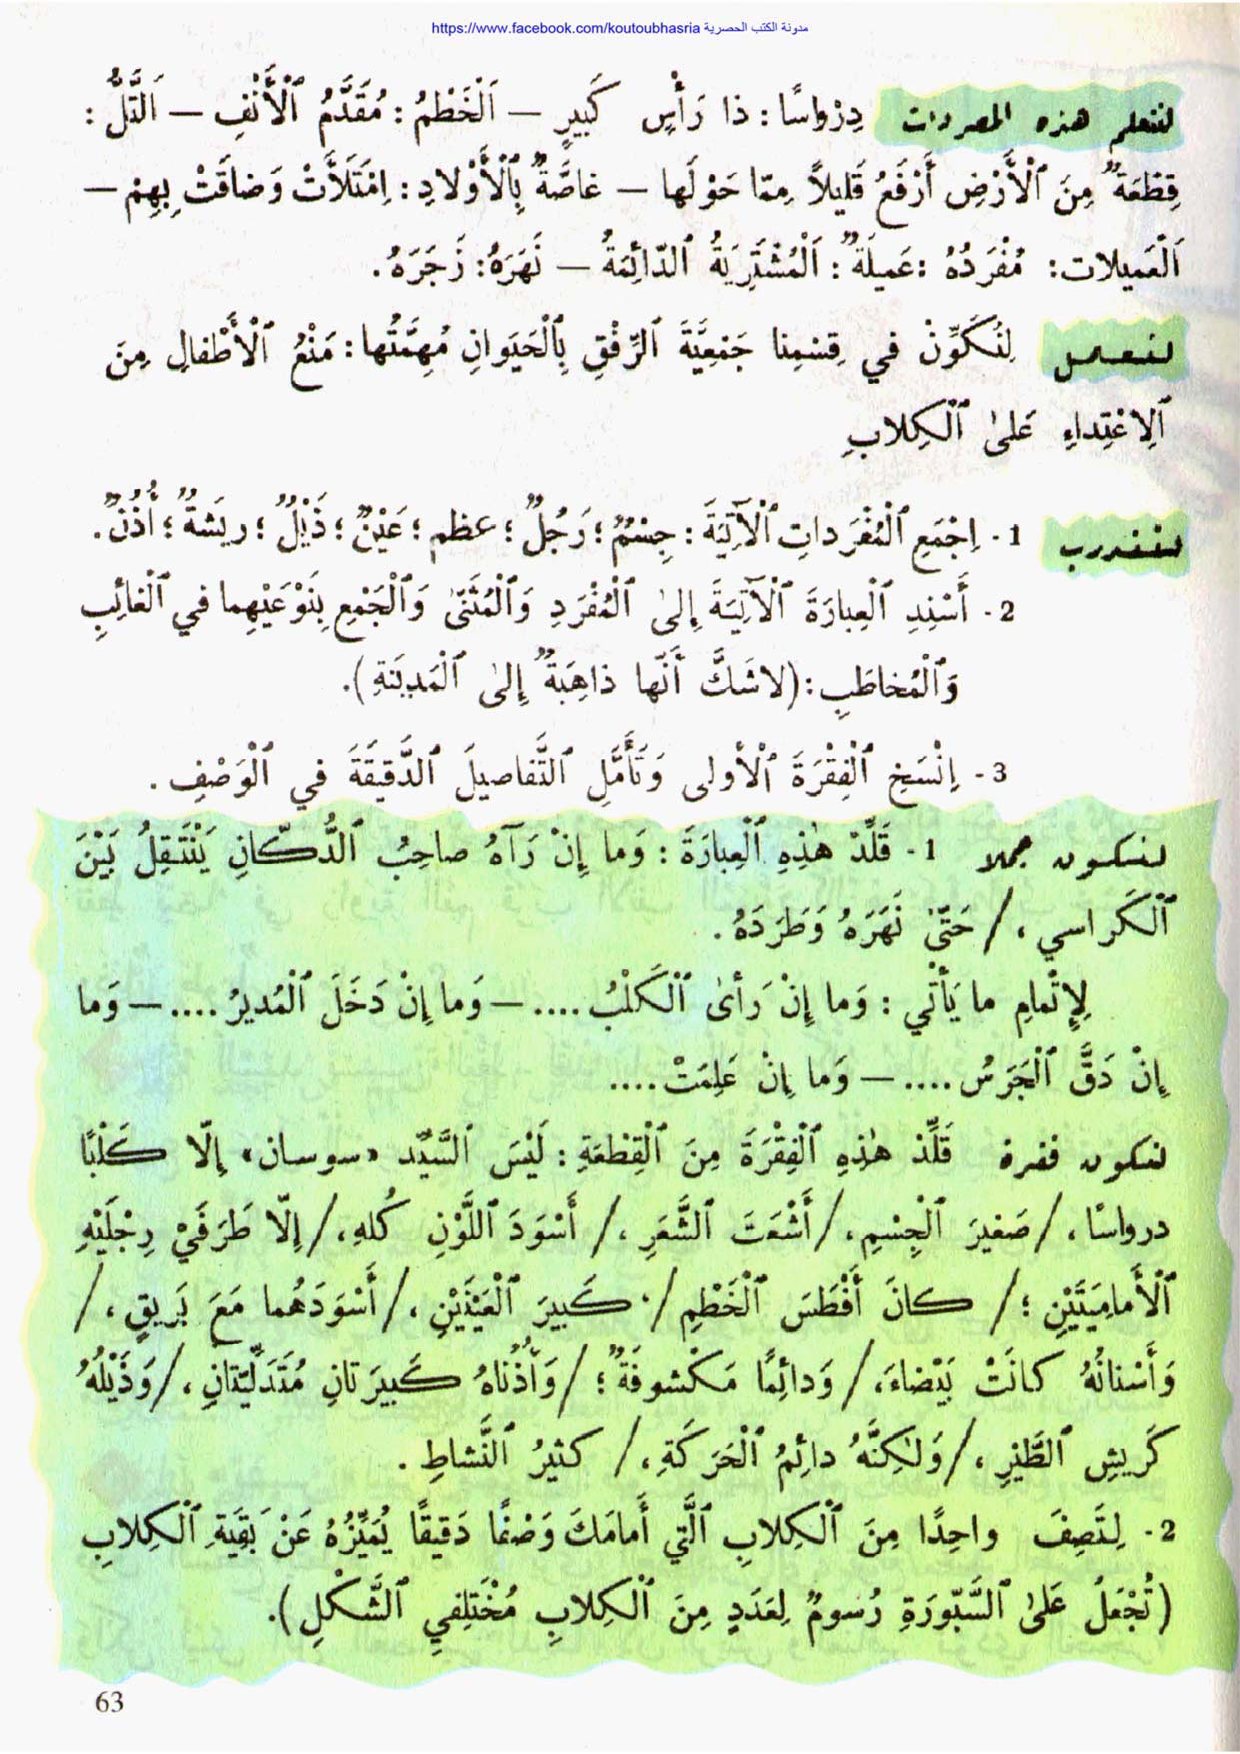 https://www.facebook.com/koutoubhasria مدونة الكتب الحصرية
لنتعلم هذه المفردات دِرْواسًا : ذا رَأْسٍ كَبيرٍ — اَلْخَطْمُ : مُقَدَّمُ ٱلْأَنْفِ — اَلتَّلُّ :
قِطْعَةٌ مِنَ ٱلْأَرْضِ أَرْفَعُ قَليلاً مِمّا حَوْلَها — غاصَّةٌ بِٱلْأَوْلادِ : اِمْتَلَأَتْ وَضاقَتْ بِهِمْ —
اَلْعَميلات : مُفْرَدُهُ : عَميلَةٌ : اَلْمُشْتَرِيَةُ ٱلدّائِمَةُ — نَهَرَهُ : زَجَرَهُ .
لنعمل لِنُكَوِّنْ في قِسْمِنا جَمْعِيَّةَ ٱلرِّفْقِ بِٱلْحَيَوانِ مُهِمَّتُها : مَنْعُ ٱلْأَطْفالِ مِنَ
ٱلِاعْتِداءِ عَلىٰ ٱلْكِلابِ
لنتدرب 1 - اِجْمَعِ ٱلْمُفْرَداتِ ٱلْآتِيَةَ : جِسْمٌ ؛ رَجُلٌ ؛ عظم ؛ عَيْنٌ ؛ ذَيْلٌ ؛ ريشَةٌ ؛ أُذُنٌ .
2 - أَسْنِدِ ٱلْعِبارَةَ ٱلْآتِيَةَ إِلىٰ ٱلْمُفْرَدِ وَٱلْمُثَنّىٰ وَٱلْجَمْعِ بِنَوْعَيْهِما في ٱلْغائِبِ
وَٱلْمُخاطَبِ : (لاشَكَّ أَنَّها ذاهِبَةٌ إِلىٰ ٱلْمَدينَةِ).
3 - اِنْسَخِ ٱلْفِقْرَةَ ٱلْأولى وَتَأَمَّلِ ٱلتَّفاصيلَ ٱلدَّقيقَةَ في ٱلْوَصْفِ .
لنكون جملا 1 - قَلِّدْ هٰذِهِ ٱلْعِبارَةَ : وَما إِنْ رَآهُ صاحِبُ ٱلدُّكّانِ يَنْتَقِلُ بَيْنَ
ٱلْكَراسي ، / حَتّىٰ نَهَرَهُ وَطَرَدَهُ .
لِإِتْمامِ ما يَأْتي : وَما إِنْ رَأىٰ ٱلْكَلْبُ .... — وَما إِنْ دَخَلَ ٱلْمُديرُ .... — وَما
إِنْ دَقَّ ٱلْجَرَسُ .... — وَما إِنْ عَلِمَتْ ....
لنكون فقرة قَلِّدْ هٰذِهِ ٱلْفِقْرَةَ مِنَ ٱلْقِطْعَةِ : لَيْسَ ٱلسَّيِّد «سوسان» إِلّا كَلْبًا
درواسًا ، / صَغيرَ ٱلْجِسْمِ ، / أَشْعَثَ ٱلشَّعَرِ ، / أَسْوَدَ ٱللَّوْنِ كُلهِ ، / إِلّا طَرَفَيْ رِجْلَيْهِ
ٱلْأَمامِيَتَيْنِ ؛ / كانَ أَفْطَسَ ٱلْخَطْمِ / كَبيرَ ٱلْعَيْنَيْنِ ، / أَسْوَدَهُما مَعَ بَريقٍ ، /
وَأَسْنانُهُ كانَتْ بَيْضاءَ ، / وَدائِمًا مَكْشوفَةٌ ؛ / وَأُذُناهُ كَبيرَتانِ مُتَدَلِّيَتانِ ، / وَذَيْلُهُ
كَريشِ ٱلطَّيْرِ ، / وَلٰكِنَّهُ دائِمُ ٱلْحَرَكَةِ ، / كثيرُ ٱلنَّشاطِ .
2 - لِتَصِفَ واحِدًا مِنَ ٱلْكِلابِ ٱلَّتي أَمامَكَ وَصْفًا دَقيقًا يُمَيِّزُهُ عَنْ بَقِيَةِ ٱلْكِلابِ
(تُجْعَلُ عَلىٰ ٱلسَّبّورَةِ رُسومٌ لِعَدَدٍ مِنَ ٱلْكِلابِ مُخْتَلِفي ٱلشَّكْلِ).
63